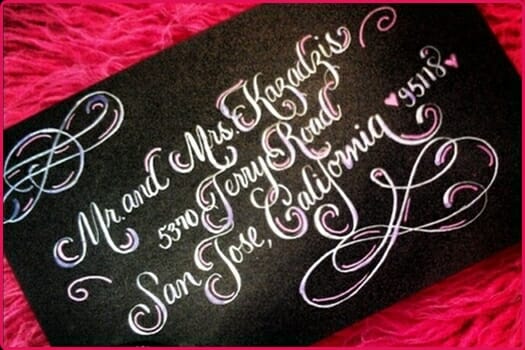 Mr. and Mrs. Kazadzis
5370 Terry Road
San Jose, California 95118